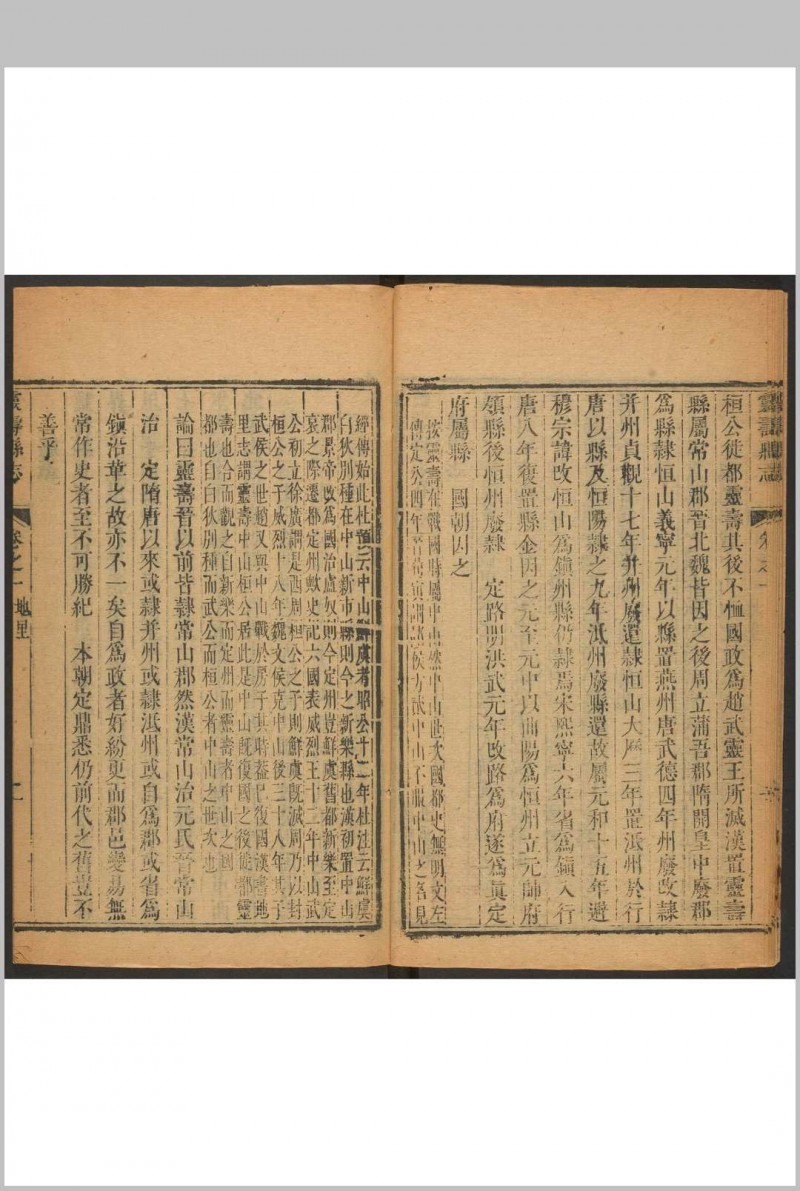 靈壽縣志
卷之一
桓公徙都靈壽其後不恤國政爲趙武靈王所滅漢置靈壽
縣屬常山郡晉北魏皆因之後周立蒲吾郡隋開皇中廢郡
爲縣隸恒山義寧元年以縣置燕州唐武德四年州廢改隸
并州貞觀十七年并州廢還隸恒山大曆三年置泜州於行
唐以縣及恒陽隸之九年泜州廢縣還故屬元和十五年避
穆宗諱改恒山爲鎭州縣仍隸焉宋熙寧六年省爲鎭入行
唐八年復置縣金因之元至元中以曲陽爲恒州立元帥府
領縣後恒州廢隸 定路明洪武元年改路爲府遂爲眞定
府屬縣 國朝因之
按靈壽在戰國時屬中山然中山世次國都史無明文左
傳定公四年晉荀寅謂范侯方曰中山不服中山之名見
經傳始此杜預云中山鮮虞考昭公十二年杜注云鮮虞
白狄別種在中山新市縣則今之新樂縣也漢初置中山
郡景帝改爲國治盧奴則今定州豈鮮虞舊都新樂至定
哀之際遷都定州歟史記六國表威烈王十二年中山武
公初立徐廣謂是西周桓公之子則鮮虞旣滅周乃以封
桓公之子威烈十八年魏文侯克中山後三十八年其子
武侯之世趙又與中山戰於房子其時蓋已復國漢書地
里志謂靈壽中山桓公居此是中山旣復國之後徙都靈
壽也合而觀之自新樂而定州而靈壽者中山之國
都也自白狄別種而武公而桓公者中山之世次也
論曰靈壽晉以前皆隸常山郡然漢常山治元氏晉常山
治 定隋唐以來或隸并州或隸泜州或自爲郡或省爲
鎭沿革之故亦不一矣自爲政者好紛更而郡邑變易無
常作史者至不可勝紀 本朝定鼎悉仍前代之舊豈不
善乎
靈壽縣志
卷之一 地里
二